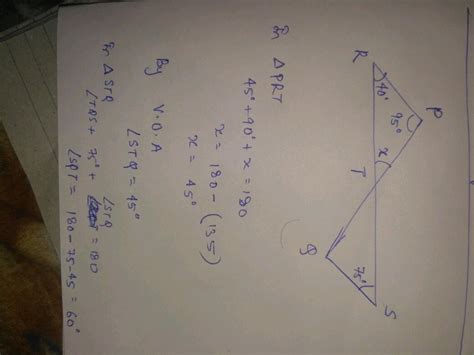 P
R
95°
40°
x
T
Q
75°
S
In △PRT
45° + 90° + x = 180
x = 180 - (135)
x = 45°
By V.O.A
∠STQ = 45°
In △STQ
∠TQS + 75° + ∠STQ = 180
∠SQT = 180 - 75 - 45 = 60°